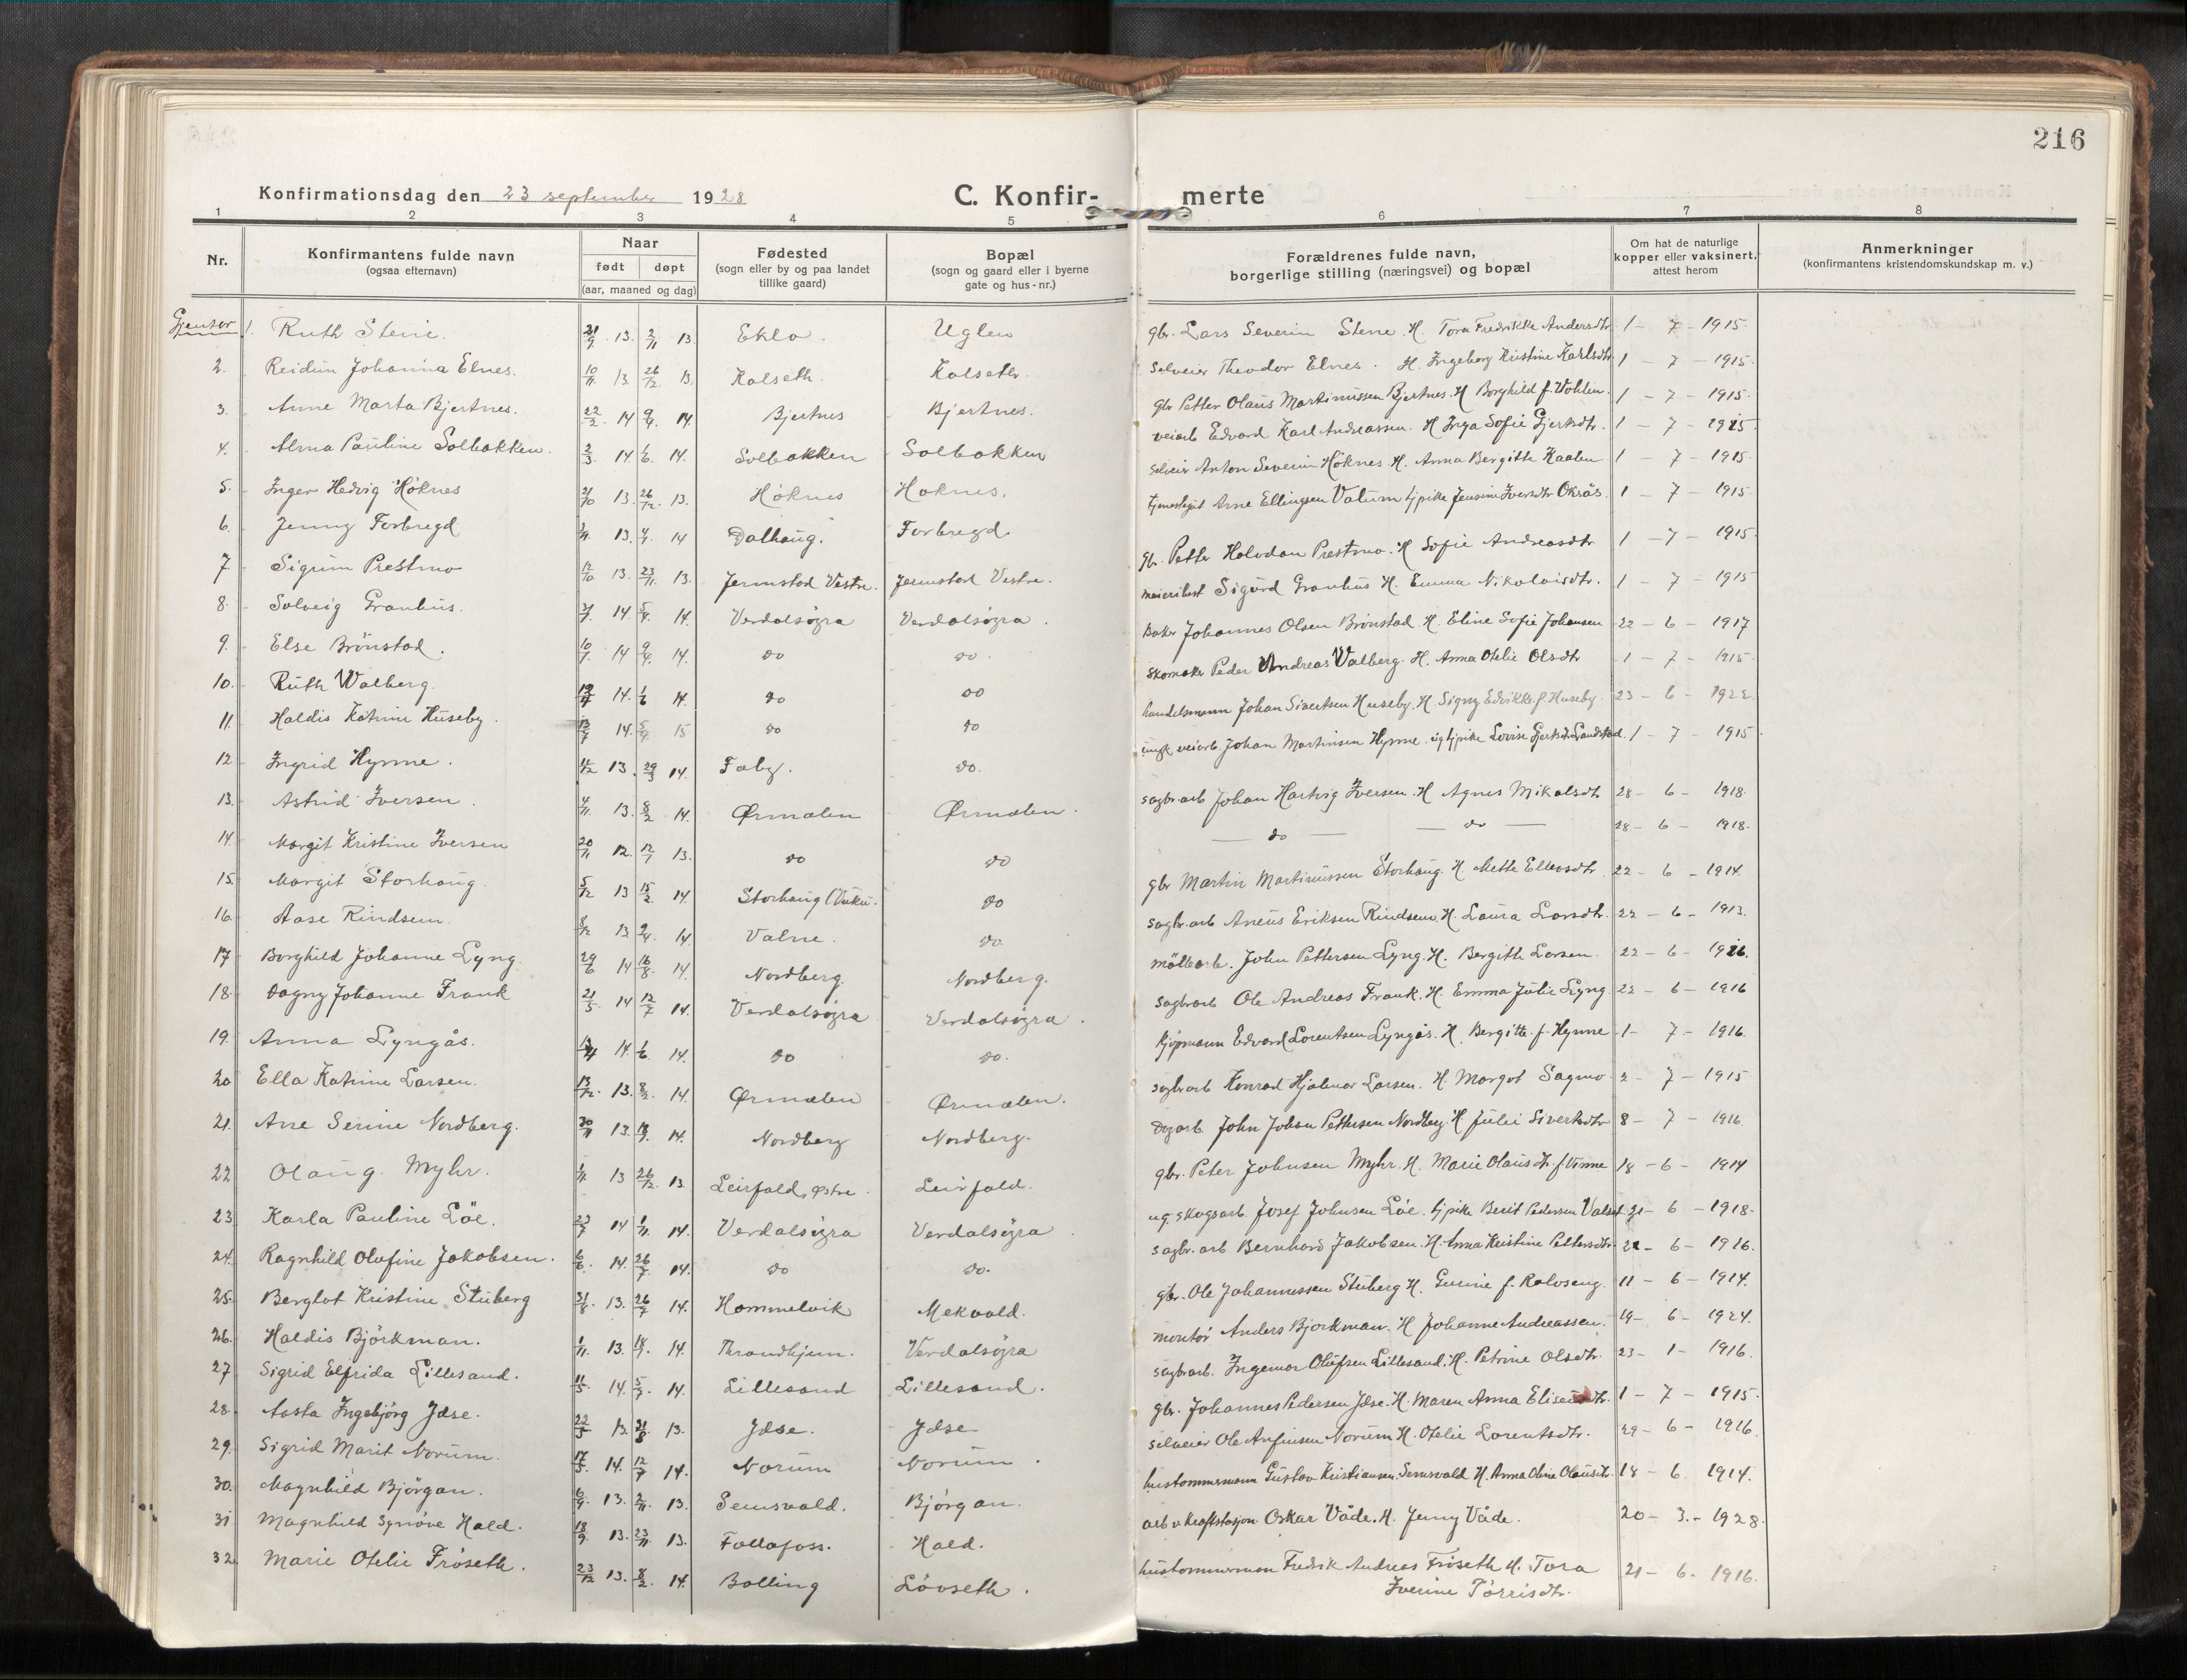 216
Konfirmationsdag den 23 september 1928 C. Konfir- merte
1 2 3 4 5 6 7 8
Nr. Konfirmantens fulde navn (ogsaa efternavn) Naar født døpt (aar, maaned og dag) Fødested (sogn eller by og paa landet tillike gaard) Bopæl (sogn og gaard eller i byerne gate og hus-nr.) Forældrenes fulde navn, borgerlige stilling (næringsvei) og bopæl Om hat de naturlige kopper eller vaksinert, attest herom Anmerkninger (konfirmantens kristendomskundskap m. v.)
Gjentor 1. Ruth Stene. 13. 2/11 13. Eklo. Uglen gbr. Lars Severin Stene. H. Tora Fredrikke Andersdtr. 1 - 7 - 1915.
2. Reidun Johanna Elnes. 10/11 13. 26/12 13. Kalseth. Kolseth. selveier Theodor Elnes. H. Ingeborg Kristine Karlsdtr. 1 - 7 - 1915.
3. Anne Marta Bjertnes. 22/2 14 9/4. 14. Bjertnes Bjertnes. gbr Petter Olaus Martinussen Bjertnes. H Borghild f. Vohlen. 1 - 7 - 1915.
4. Alma Pauline Solbakken. 2/3. 14. 1/6. 14. Solbakken Solbakken veiarb Edvard Karl Andreassen. H Inga Sofie Gjertsdtr. 1 - 7 - 1915.
5. Inger Hedvig Höknes 2/10 13. 26/12. 13. Höknes Hoknes. selveier Anton Severin Höknes. H. Anna Bergitte Kaalen 1 - 7 - 1915.
6. Jenny Forbregd 13. 4/1. 14 Dalhaug. Forbregd. Arne Ellingsen Valum tjpike Jensine Iversdtr Oksås. 1 - 7 - 1915.
7 Sigrun Prestmo 12/10 13. 23/11. 13. Jermstad Vestre. Jermstad Vestre. gbr. Petter Halvdan Prestmo. H Sofie Andreasdtr 1 - 7 - 1915.
8. Solveig Granhus. 14 5/4. 14. Verdalsøra Verdalsøra. meieribest Sigurd Granhus H. Emma Nikolaisdtr. 1 - 7 - 1915
9. Else Brönstad. 10/1. 14 9/4. 14. do do. Baker Johannes Olsen Brönstad. H. Eline Sofie Johansen 22 - 6 - 1917
10. Ruth Walberg. 14. 1/6 14. do do skomaker Peder Andreas Valberg. H. Anna Otelie Olsdtr 1 - 7 - 1915.
11. Haldis Katrine Huseby. 14. 5/4. 15 do do handelsmann Johan Sivertsen Huseby. H. Signy Edvikke f. Huseby. 23 - 6 - 1922.
12 Ingrid Hynne. 13. 29/3 14. Faby. do. ungk veiarb. Johan Martinsen Hynne. og tjpike Lovise Gjertsdtr Sandstad. 1 - 7 - 1915.
13. Astrid Iversen. 4/11. 13. 8/2 14. Ørmelen Ørmelen. sagbr.arb Johan Hartvig Iversen. H Agnes Mikalsdtr 28 - 6 - 1918.
14. Margit Kristine Iversen 20/11 12. 12/1 13. do do — do — — do — 28 - 6 - 1918.
15. Margit Storhaug. 5/12 13 15/2 14. Storhaug (Vuku. do gbr Martin Martinussen Storhaug. H. Mette Ellevsdtr 22 - 6 - 1914.
16. Aase Rindsem. 13 2/4. 14. Valne. do. sagbr.arb Aneus Eriksen Rindsem. H. Laura Larsdtr. 22 - 6 - 1913.
17 Borghild Johanne Lyng. 29/6 14 16/8. 14. Nordberg. Nordberg. möllearb. John Pettersen Lyng. H. Bergitte Larsen. 22 - 6 - 1916.
18. Dagny Johanne Frank 21/5 14 12/7 14. Verdalsøra Verdalsøra. sagbrarb Ole Andreas Frank. H. Emma Julie Lyng 22 - 6 - 1916
19. Anna Lyngås. 14. 1/6. 14. do do. kjøpmann Edvard Lorentsen Lyngås. H. Bergitte f. Hynne 1 - 7 - 1916.
20 Ella Katrine Larsen. 13/12. 13. 8/2. 14. Ørmelen Ørmelen. sagbrarb Konrad Hjalmar Larsen. H. Margot Sagmo. 2 - 7 - 1915
21. Ane Serine Nordberg. 20/11 13. 14. Nordberg Nordberg. Dagarb. John Johan Pettersen Nordberg. H Julie Sivertsdtr 8 - 7 - 1916.
22 Olaug Myhr. 1/11. 13 26/12. 13. Leirfald, østre. Leirfald. gbr. Peter Johnsen Myhr. H. Marie Olausdtr f. Vinne 18 - 6 - 1914
23 Karla Pauline Löe. 23/7 14 1/11. 14. Verdalsøra Verdalsøra. ug. skogsarb. Josef Johnsen Löe. tjpike Berit Pedersen Valset 21 - 6 - 1918.
24. Ragnhild Olufine Jakobsen. 6/6. 14. 26/7 14. do do. sagbr. arb Bernhard Jakobsen. H. Anna Kristine Pettersdtr. 22 - 6 - 1916.
25. Berglot Kristine Stuberg 31/8. 13. 26/7 14. Hommelvik Mekvold. gbr. Ole Johannessen Stuberg H. Gurine f. Rolvseng. 11 - 6 - 1914.
26. Haldis Björkman. 1/11. 13. 14. Throndhjem. Verdalsøra montør Anders Bjorkman. H Johanne Andreassen. 19 - 6 - 1924.
27 Sigrid Elfrida Lillesand. 11/5. 14. 5/7. 14. Lillesand Lillesand. sagbrarb. Ingemar Olufsen Lillesand. H. Petrine Olsdtr. 23 - 1 - 1916.
28. Aasta Ingebjørg Jdse. 22/5 13. 13. Jdse. Jdse gbr. Johannes Pedersen Jdse. H. Maren Anna Eliseusdtr. 1 - 7 - 1915.
29. Sigrid Marit Norum. 17/5. 14. 12/7 14. Norum Norum. selveier Ole Arnfinsen Norum H. Otelie Lorentsdtr. 29 - 6 - 1916.
30. Magnhild Björgan. 6/9. 13. 2/11. 13. Semsvald. Bjørgan. hustommermann Gustav Kristiansen Semsvald H. Anna Oline Olausdtr. 18 - 6. 1914.
31. Magnhild Synnöve Hald. 18/9. 13. 23/11 13. Follafoss. Hald. arb v. Kraftstasjon Oskar Våde. H. Jenny Våde. 20 - 3. - 1928.
32. Marie Otelie Fröseth. 23/12 13. 8/2. 14. Bolling Lövseth. hustommermann Fredrik Andreas Fröseth H. Tora 21 - 6. 1916.
Iverine Törrisdtr.